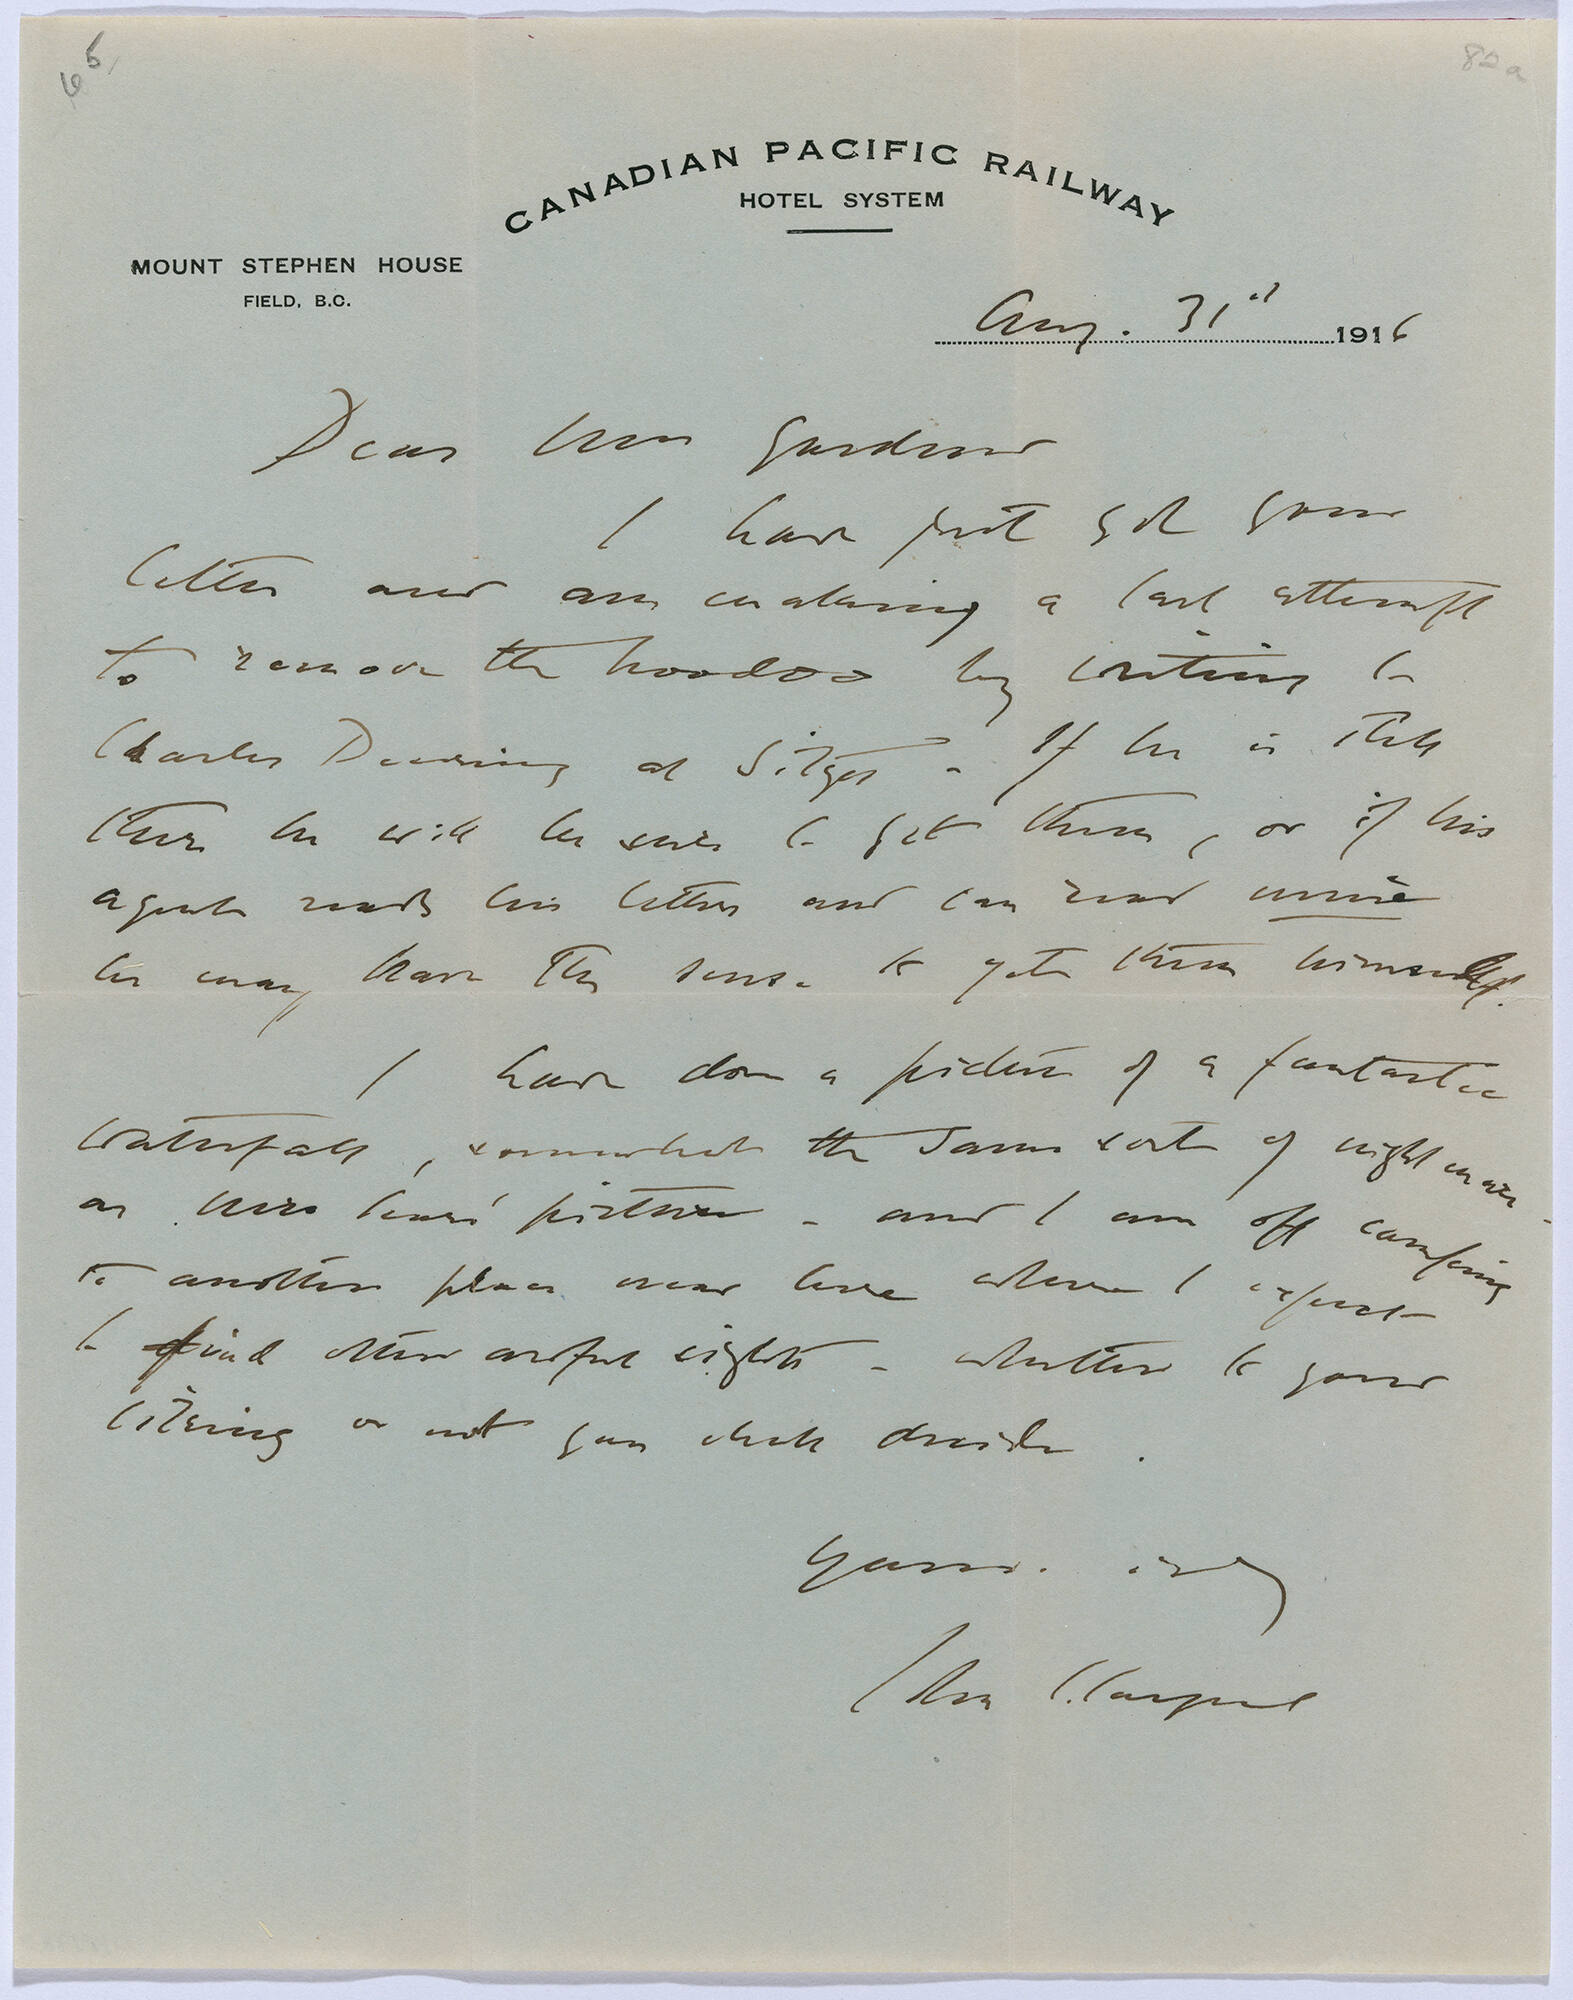 65
82a
CANADIAN PACIFIC RAILWAY
HOTEL SYSTEM
MOUNT STEPHEN HOUSE
FIELD, B.C.
Aug. 31st 1916
Dear Mrs Gardner
I have just got your
letter and am making a last attempt
to remove the hoodoo by writing to
Charles Deering at Sitges - If he is still
there he will be sure to get them, or if his
agent reads his letters and can read mine
he may have the sense to get them himself.
I have done a picture of a fantastic
waterfall, somewhat the same sort of nightmare
as Mrs picture - and I am off camping
to another place near here where I expect
to find other awful sights - whether to your
liking or not you shall decide.
Yours
John S. Sargent